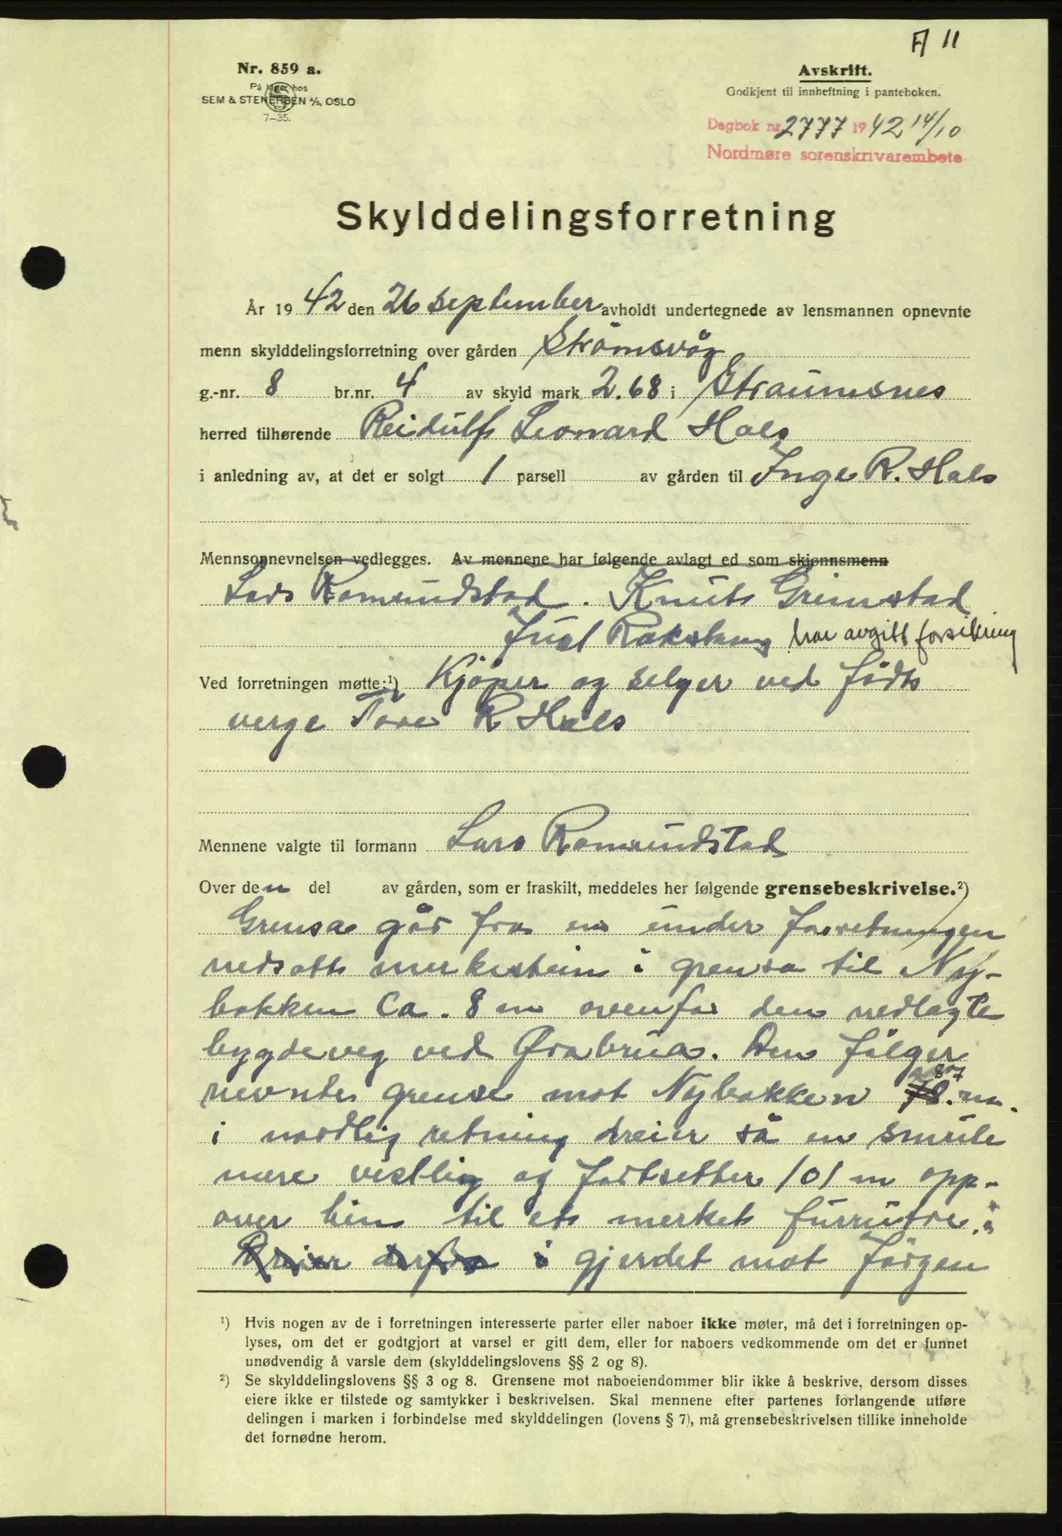 A 11
Nr. 859 a.
På lager hos
SEM & STENERSEN A/S, OSLO
7-35.
Avskrift.
Godkjent til innheftning i panteboken.
Dagbok nr. 2777 1942 14/10
Nordmøre sorenskriverembete
Skylddelingsforretning
År 1942 den 26 september avholdt undertegnede av lensmannen opnevnte
menn skylddelingsforretning over gården Strømsvåg
g.-nr. 8 br.nr. 4 av skyld mark 2.68 i Straumsnes
herred tilhørende Reidulf Leonard Hals
i anledning av, at det er solgt 1 parsell av gården til Inge R. Hals
Mennsopnevnelsen vedlegges. Av mennene har følgende avlagt ed som skjønnsmenn
Lars Romundstad. Knut Grimstad
Juel Rokstang har avgitt forsikring
Ved forretningen møtte:¹) Kjøper og selger ved født
verge Tore R Hals
Mennene valgte til formann Lars Romundstad
Over den del av gården, som er fraskilt, meddeles her følgende grensebeskrivelse.²)
Grensa går fra en under forretningen
nedsatt merkestein i grensa til Ny-
bakken Ca. 8 m ovenfor den nedlagte
bygdeveg ved Ørabrua. Den følger
nevnte grense mot Nybakken 87 m.
i nordlig retning dreier så en smule
mere vestlig og fortsetter 101 m opp-
over lien til et merket furrutre i
Dreier derfra i gjerdet mot Jørgen
¹) Hvis nogen av de i forretningen interesserte parter eller naboer ikke møter, må det i forretningen op-
lyses, om det er godtgjort at varsel er gitt dem, eller for naboers vedkommende om det er funnet
unødvendig å varsle dem (skylddelingslovens §§ 2 og 8).
²) Se skylddelingslovens §§ 3 og 8. Grensene mot naboeiendommer blir ikke å beskrive, dersom disses
eiere ikke er tilstede og samtykker i beskrivelsen. Skal mennene efter partenes forlangende utføre
delingen i marken i forbindelse med skylddelingen (lovens § 7), må grensebeskrivelsen tillike inneholde
det fornødne herom.